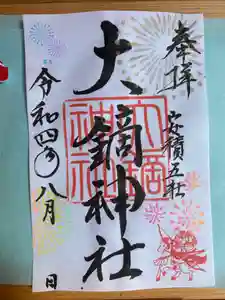 奉拝
安積五社
大鏑神社
大鏑
神社
令和四年八月 日